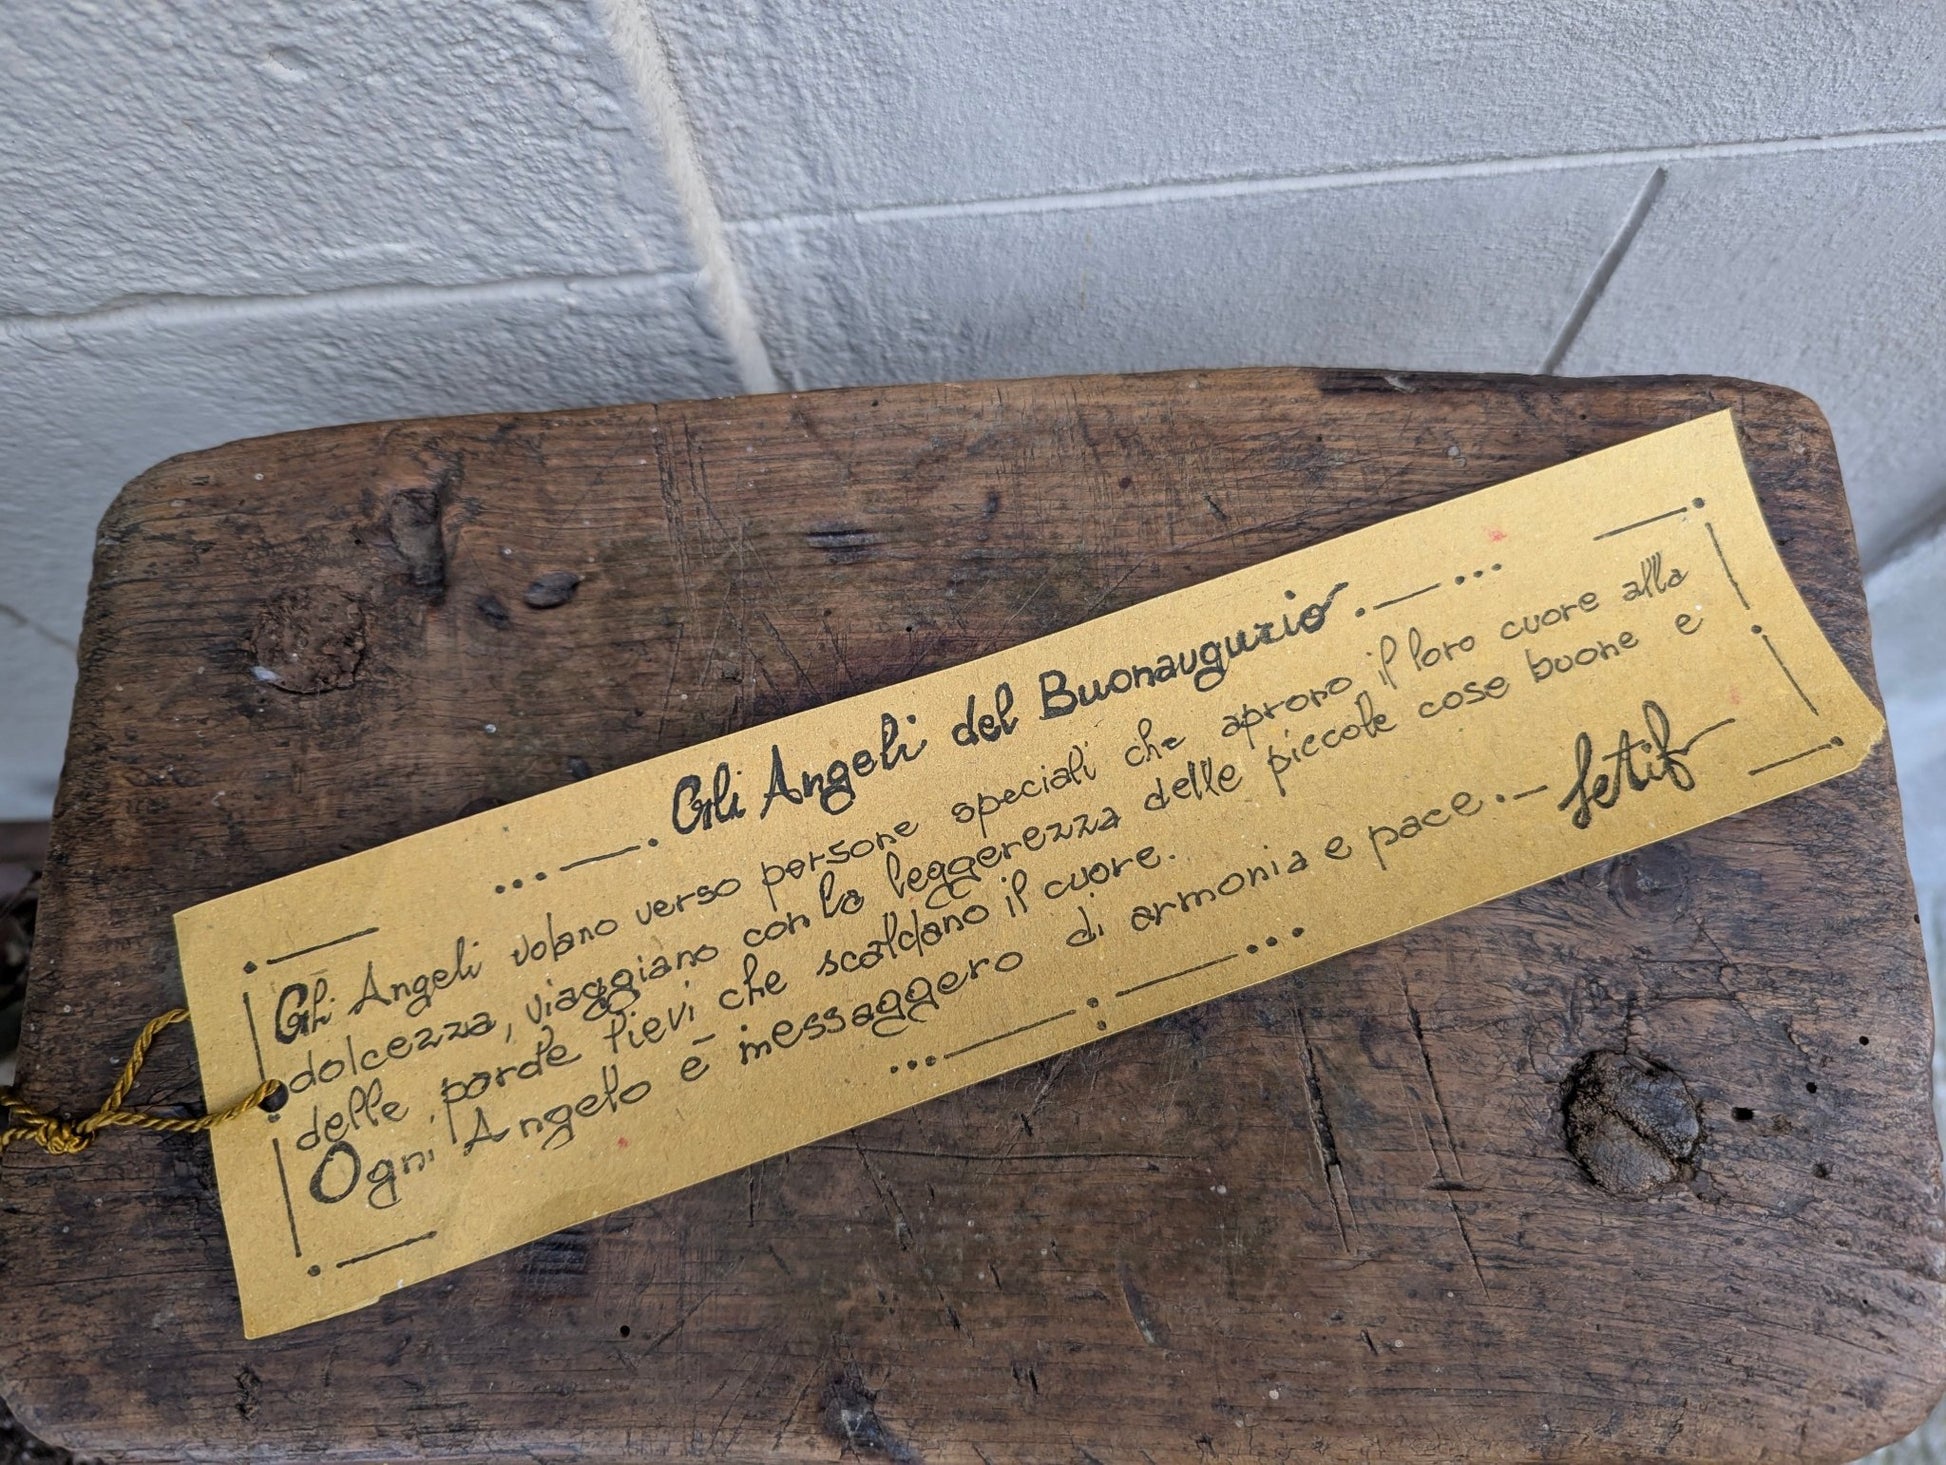 Gli Angeli del Buonaugurio
Gli Angeli volano verso persone speciali che aprono il loro cuore alla
dolcezza, viaggiano con la leggerezza delle piccole cose buone e
delle parole lievi che scaldano il cuore.
Ogni Angelo è messaggero di armonia e pace.